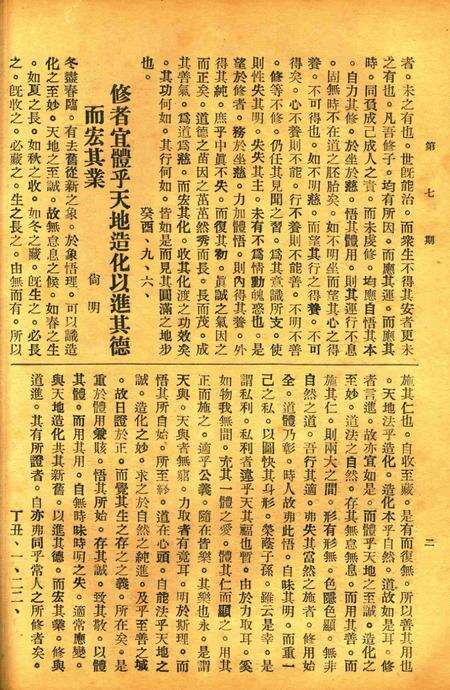 第七期
者。未之有也。世旣能治。而衆生不得其安者更未
之有也。凡吾修子。均有所因。而應其運。而應其
時。同負成己成人之責。而未度修。均應自悟其本
。自力其修。於坐於慈。悟其體用。則其運行不息
。固無時不在道之胚胎矣。如不明坐而望其心之得
養。不可得也。如不明慈。而望其行之得養。不可
得矣。心不養則不能。行不養則不能善。不明不善
。修等不修。仍任其見聞之習。爲其意識所支。使
則性失其明。失失其主。未有不爲情動魄惑也。是
望於修者。務於坐慈。力加體悟。則內得其養。外
得其純。庶乎中眞不失。而復其初。眞誠之氣因之
而正矣。道德之苗因之萬萬然秀而長。長而茂。成
其善氣。爲道爲慈。而宏其化。收其化渡之功效矣
。其功何如。其行何如。皆如是而見其圓滿之地步
也。
癸酉、九、六、
修者宜體乎天地造化以進其德
而宏其業
尙明
冬盡春臨。有去舊從新之象。於象悟理。可以識造
化之至妙。天地之至誠。故無息之候。如春之生
。如夏之長。如秋之收。如冬之藏。旣生之。必長
之。旣收之。必藏之。生之長之。由無而有。所以
二
施其仁也。自收至藏。是有而復無。所以善其用也
。天地法乎造化。造化本乎自然。道故如是耳。修
者言進。故亦宜如是。而體乎天地之至誠。造化之
至妙。道法之自然。存其無息無息。而用其善。而
施其仁。則兩大之間。形有形無。色隱色顯。無非
自然之道。吾行其適。弗失其富然之施者。修用始
全。道體乃彰。時人故弗此悟。自昧其明。而重一
己之私。以圖快其身形。榮蔭子孫。雖云是幸。是
謂私利。私利者違乎天其福也暫。由於力取耳。奚
如物我無間。充其一體之愛。體其仁而顯之。用其
正而施之。適乎公義。隨在皆樂。其樂也永。是謂
天與。天與者無竊。力取者有竟耳。明於斯理。而
悟其所自始。所至終。道在心頭。自能法乎天地之
誠。造化之妙。求之於自然之純進。及乎至善之域
。故曰證於正。而覺其生之存之之義。所在矣。是
重於體用兼賅。悟其所始。存其誠。致其敬。以體
其體。而用其用。自無時昧時明之失。適常應變。
與天地造化共其新舊。以進其德。而宏其業。修與
道進。其有所證者。自亦弗同乎常人之所修者矣。
丁丑、一、二二、